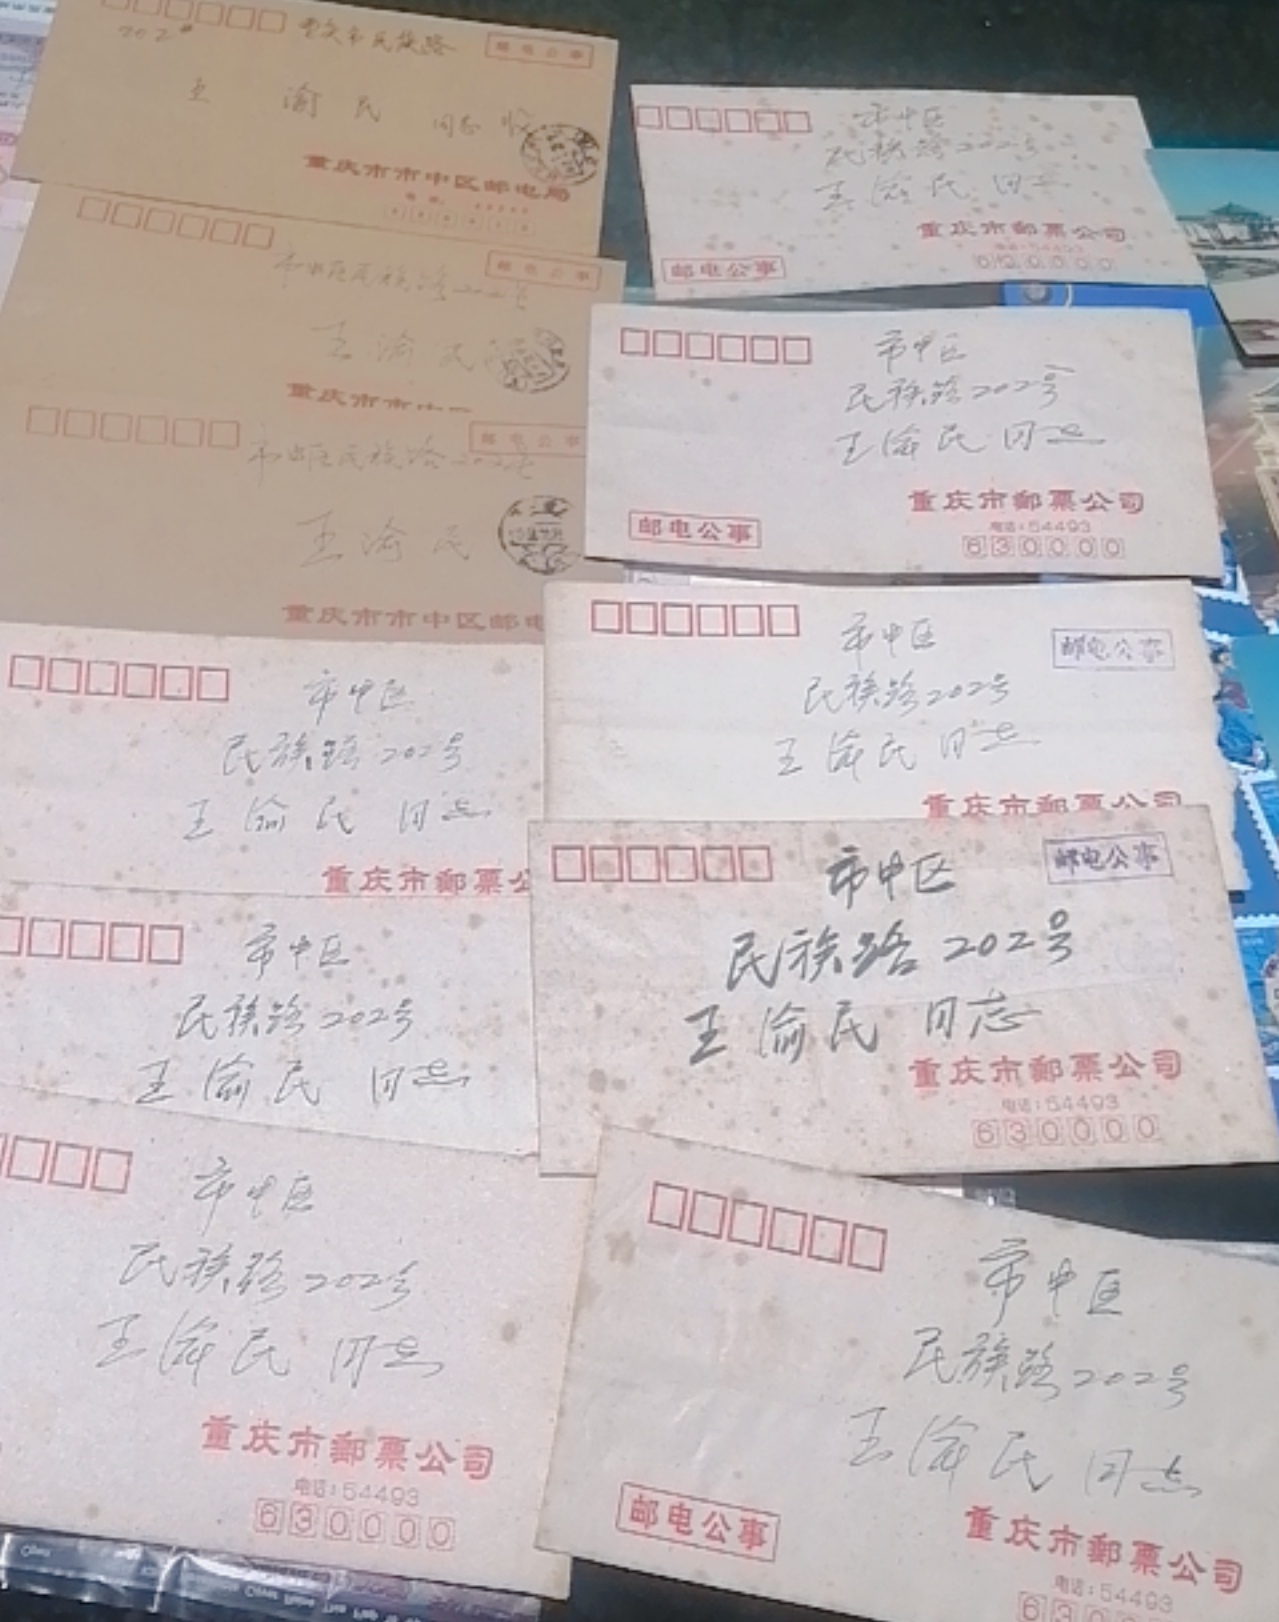 重庆市民族路
202#
邮电公事
王渝民 同志 收
重庆市市中区邮电局
市中区民族路202号
邮电公事
王渝民
重庆市市中区
市中区民族路202号
邮电公事
王渝民
重庆市市中区邮电
市中区
民族路202号
王渝民 同志
重庆市邮票公
市中区
民族路202号
王渝民 同志
市中区
民族路202号
王渝民 同志
重庆市邮票公司
电话:54493
630000
市中区
民族路202号
王渝民 同志
重庆市邮票公司
电话:54493
邮电公事
市中区
民族路202号
王渝民 同志
重庆市邮票公司
电话:54493
邮电公事
630000
市中区
邮电公事
民族路202号
王渝民 同志
重庆市邮票公司
市中区
邮电公事
民族路202号
王渝民 同志
重庆市邮票公司
电话:54493
630000
市中区
民族路202号
王渝民 同志
邮电公事
重庆市邮票公司
电话:54493
630